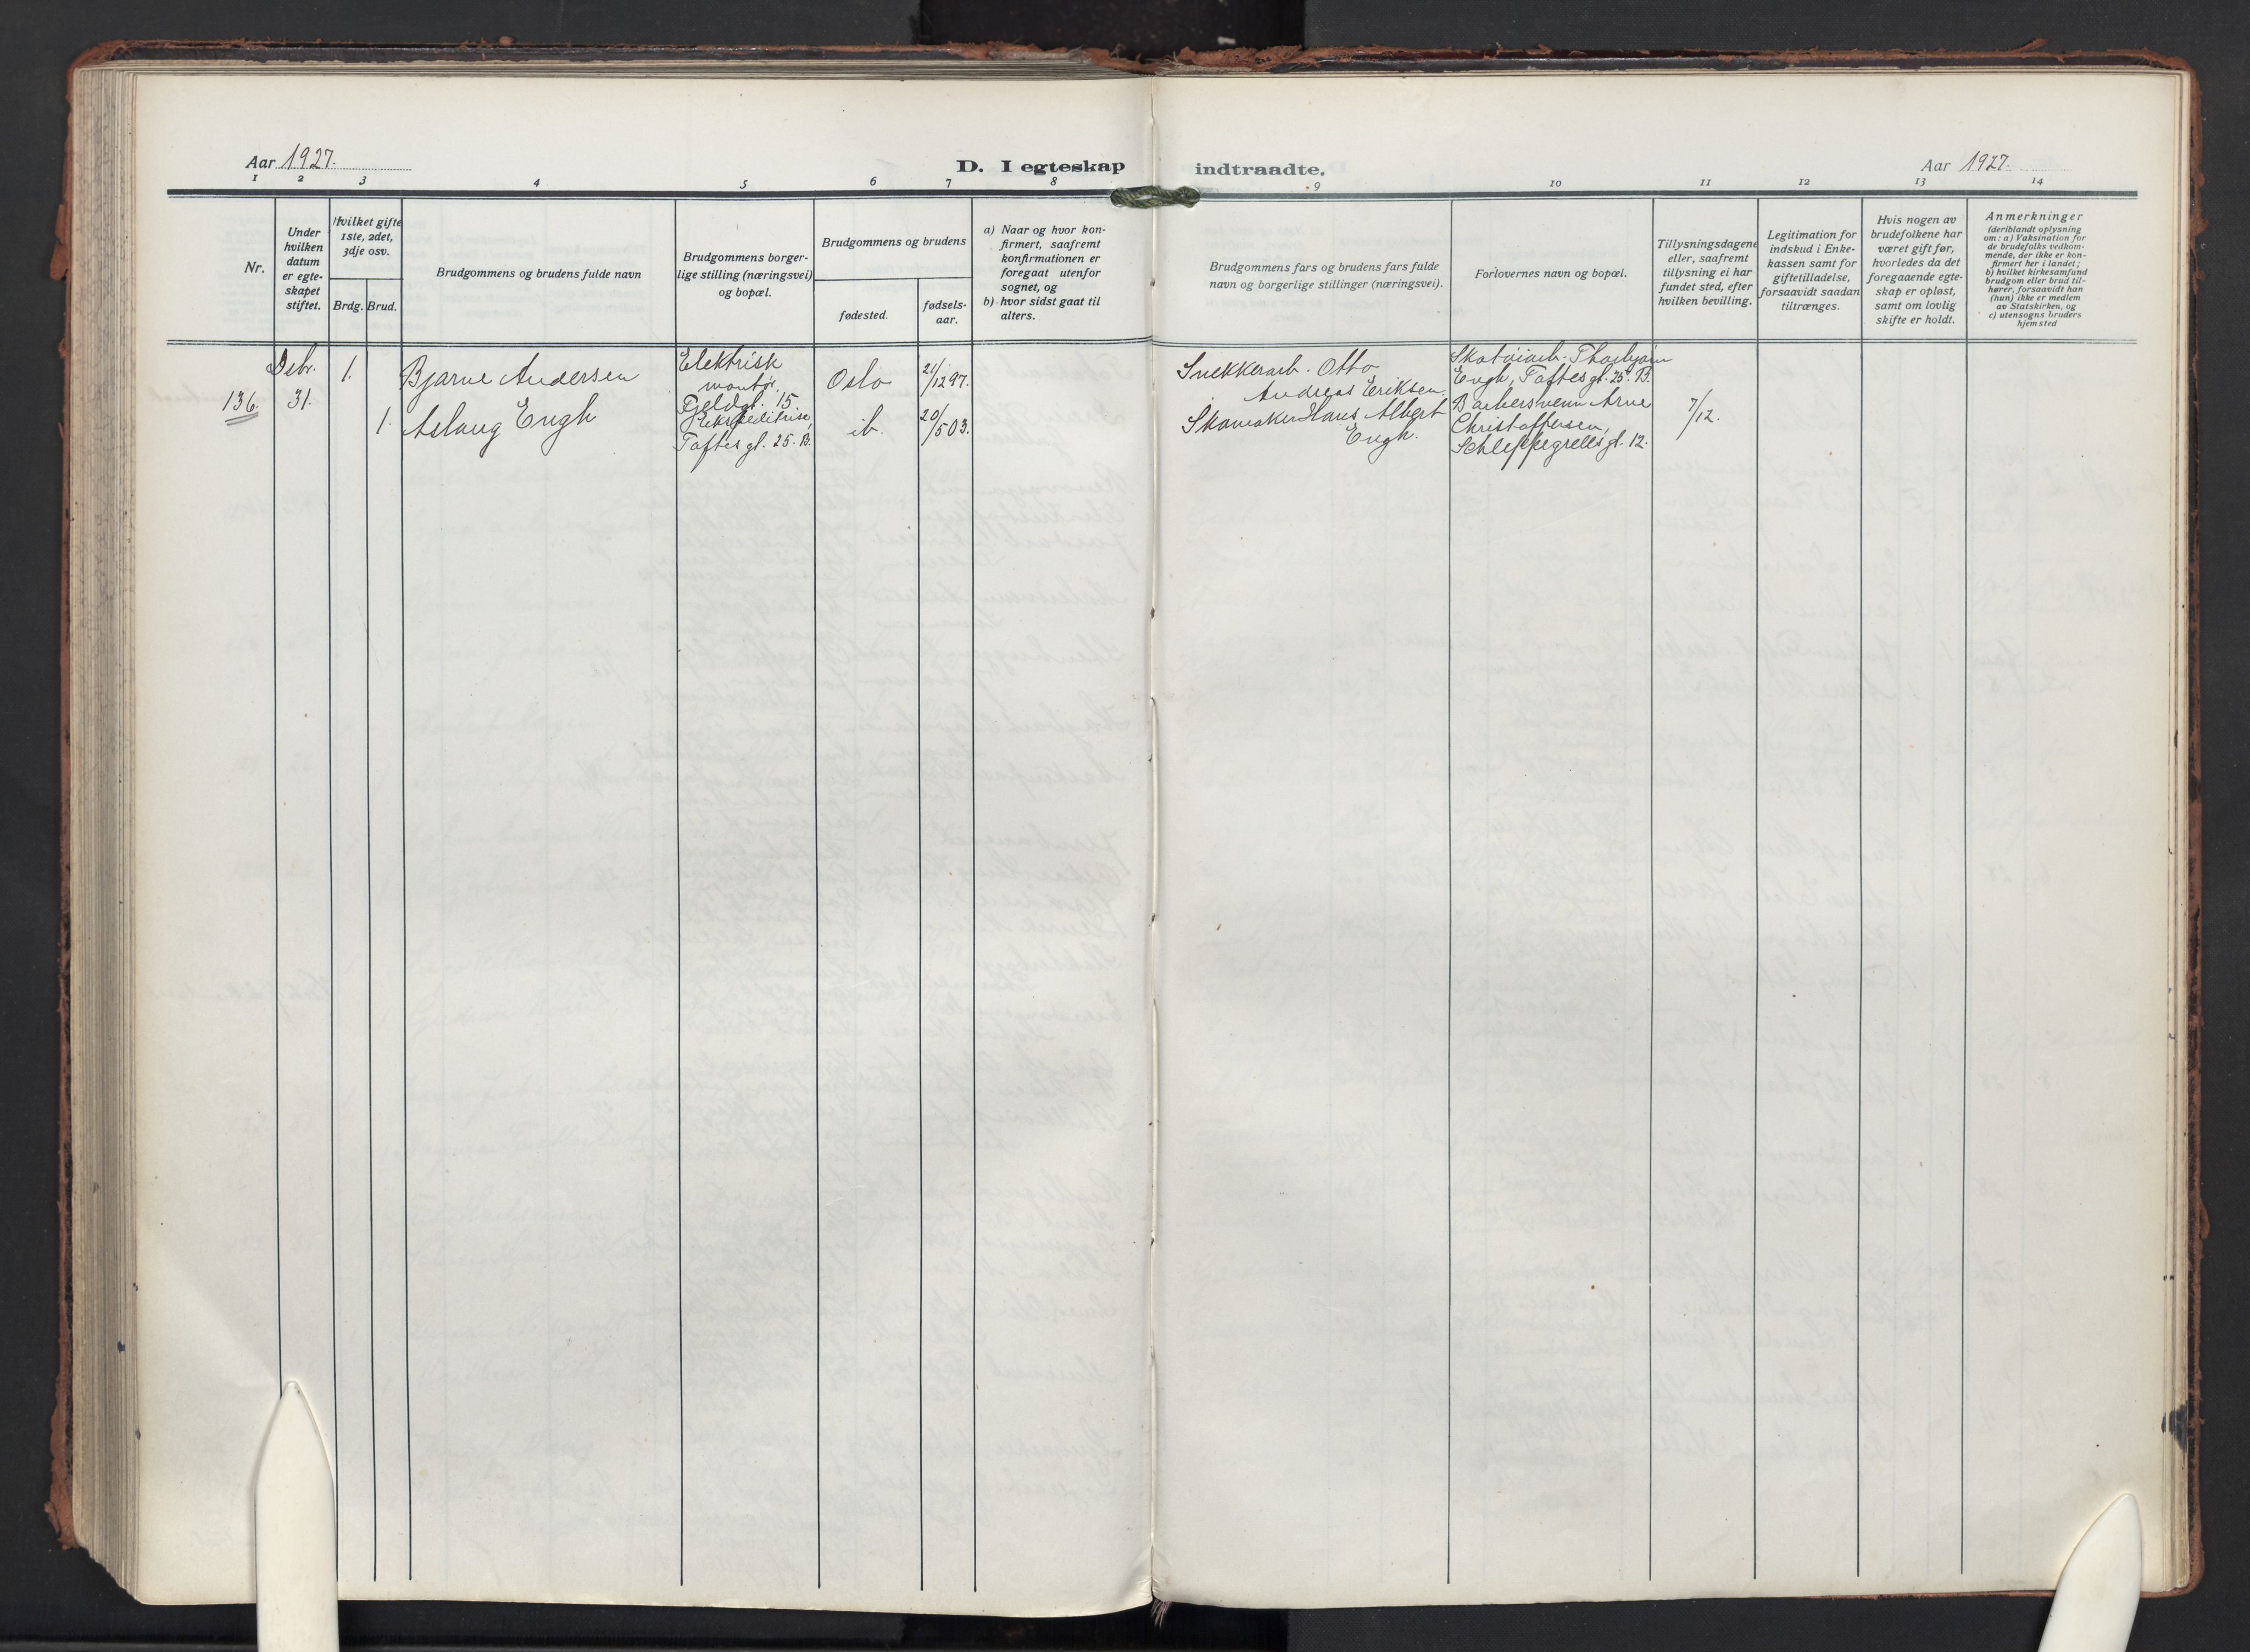 Aar 1927.
D. I egteskap indtraadte.
Aar 1927.
1 2 3 4 5 6 7 8 9 10 11 12 13 14
Nr.
Under
hvilken
datum
er egte-
skapet
stiftet.
Hvilket gifte
1ste, 2det,
3dje osv.
Brdg. Brud.
Brudgommens og brudens fulde navn
Brudgommens borger-
lige stilling (næringsvei)
og bopæl.
Brudgommens og brudens
fødested.
fødsels-
aar.
a) Naar og hvor kon-
firmert, saafremt
konfirmationen er
foregaat utenfor
sognet, og
b) hvor sidst gaat til
alters.
Brudgommens fars og brudens fars fulde
navn og borgerlige stillinger (næringsvei).
Forlovernes navn og bopæl.
Tillysningsdagene
eller, saafremt
tillysning ei har
fundet sted, efter
hvilken bevilling.
Legitimation for
indskud i Enke-
kassen samt for
giftetilladelse,
forsaavidt saadan
tiltrænges.
Hvis nogen av
brudefolkene har
været gift før,
hvorledes da det
foregaaende egte-
skap er opløst,
samt om lovlig
skifte er holdt.
Anmerkninger
(deriblandt oplysning
om: a) Vaksination for
de brudefolks vedkom-
mende, der ikke er kon-
firmert her i landet;
b) hvilket kirkesamfund
brudgom eller brud til-
hører, forsaavidt han
(hun) ikke er medlem
av Statskirken, og
c) utensogns bruders
hjemsted
136.
Debr.
31.
1.
Bjarne Andersen
Elektrisk
montør,
Geldgl. 15
Oslo
21/12 97.
Snekkerarb. Otto
Andreas Eriksen
Skotøiarb. Thorbjørn
Engh, Toftesgt. 25. B.
7/12.
1.
Aslaug Engh
Ekspeditrise,
Toftes gt. 25. B.
ib.
20/5 03.
Skomaker Hans Albert
Engh.
Barbersvenn Arne
Christoffersen,
Schleppegrellsgt. 12.